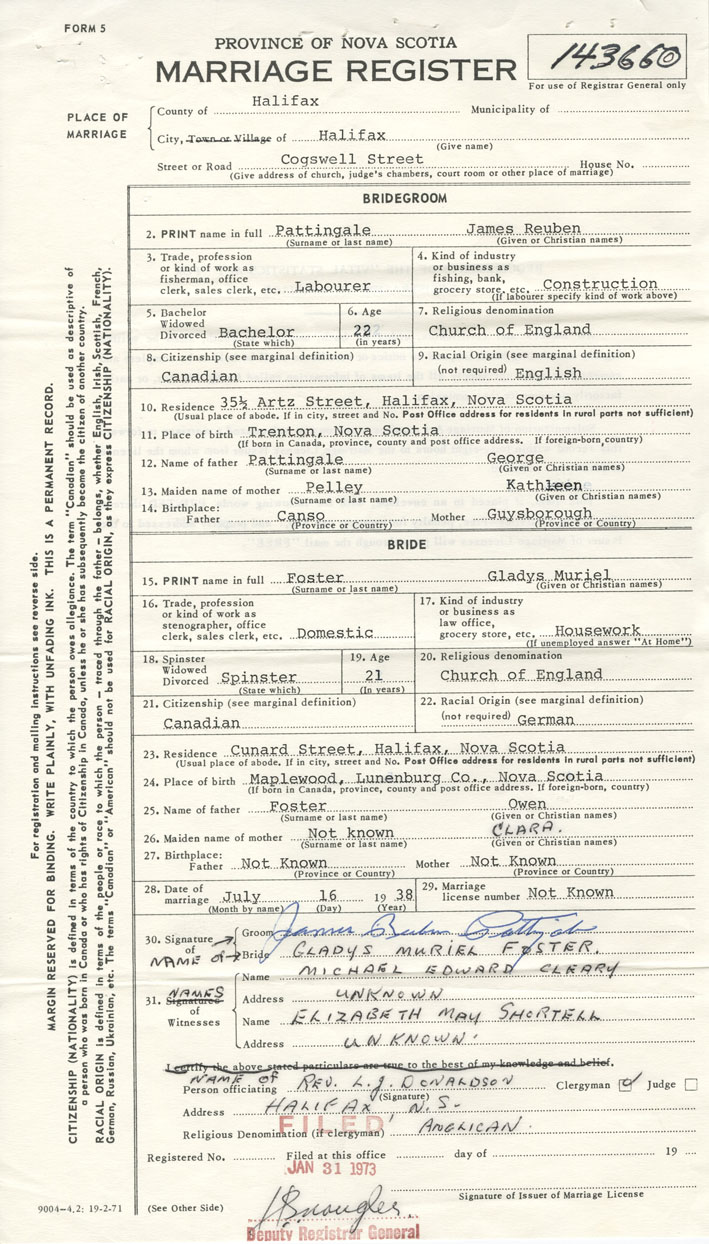 FORM 5
PROVINCE OF NOVA SCOTIA
MARRIAGE REGISTER
143660
For use of Registrar General only
PLACE OF MARRIAGE
County of Halifax Municipality of
City, Town or Village of Halifax
(Give name)
Street or Road Cogswell Street House No.
(Give address of church, judge's chambers, court room or other place of marriage)
BRIDEGROOM
2. PRINT name in full Pattingale James Reuben
(Surname or last name) (Given or Christian names)
3. Trade, profession
or kind of work as
fisherman, office
clerk, sales clerk, etc. Labourer
4. Kind of industry
or business as
fishing, bank,
grocery store, etc. Construction
(If labourer specify kind of work above)
5. Bachelor
Widowed
Divorced Bachelor
(State which)
6. Age
22
(in years)
7. Religious denomination
Church of England
8. Citizenship (see marginal definition)
Canadian
9. Racial Origin (see marginal definition)
(not required) English
10. Residence 35½ Artz Street, Halifax, Nova Scotia
(Usual place of abode. If in city, street and No. Post Office address for residents in rural parts not sufficient)
11. Place of birth Trenton, Nova Scotia
(If born in Canada, province, county and post office address. If foreign-born, country)
12. Name of father Pattingale George
(Surname or last name) (Given or Christian names)
13. Maiden name of mother Pelley Kathleen
(Surname or last name) (Given or Christian names)
14. Birthplace:
Father Canso Mother Guysborough
(Province or Country) (Province or Country)
BRIDE
15. PRINT name in full Foster Gladys Muriel
(Surname or last name) (Given or Christian names)
16. Trade, profession
or kind of work as
stenographer, office
clerk, sales clerk, etc. Domestic
17. Kind of industry
or business as
law office,
grocery store, etc. Housework
(If unemployed answer "At Home")
18. Spinster
Widowed
Divorced Spinster
(State which)
19. Age
21
(In years)
20. Religious denomination
Church of England
21. Citizenship (see marginal definition)
Canadian
22. Racial Origin (see marginal definition)
(not required) German
23. Residence Cunard Street, Halifax, Nova Scotia
(Usual place of abode. If in city, street and No. Post Office address for residents in rural parts not sufficient)
24. Place of birth Maplewood, Lunenburg Co., Nova Scotia
(If born in Canada, province, county and post office address. If foreign-born, country)
25. Name of father Foster Owen
(Surname or last name) (Given or Christian names)
26. Maiden name of mother Not known CLARA.
(Surname or last name) (Given or Christian names)
27. Birthplace:
Father Not Known Mother Not Known
(Province or Country) (Province or Country)
28. Date of
marriage July 16 1938
(Month by name) (Day) (Year)
29. Marriage
license number Not Known
30. Signature of
Groom James Reuben
NAME OF → Bride GLADYS MURIEL FOSTER.
31. Signatures NAMES
of
Witnesses
Name MICHAEL EDWARD CLEARY
Address UNKNOWN
Name ELIZABETH MAY SHORTELL
Address UNKNOWN.
I certify the above stated particulars are true to the best of my knowledge and belief.
NAME OF
Person officiating REV. L.J. DONALDSON Clergyman ☑ Judge ☐
(Signature)
Address HALIFAX, N.S.
FILED
Religious Denomination (if clergyman) ANGLICAN.
Registered No. Filed at this office day of 19
JAN 31 1973
Signature of Issuer of Marriage License
9004-4,2: 19-2-71
(See Other Side)
Deputy Registrar General
For registration and mailing instructions see reverse side.
MARGIN RESERVED FOR BINDING. WRITE PLAINLY, WITH UNFADING INK. THIS IS A PERMANENT RECORD.
CITIZENSHIP (NATIONALITY) is defined in terms of the country to which the person owes allegiance. The term "Canadian" should be used as descriptive of
a person who was born in Canada or who has rights of Citizenship in Canada, unless he or she has subsequently become the citizen of another country.
RACIAL ORIGIN is defined in terms of the people or race to which the person — traced through the father — belongs, whether English, Irish, Scottish, French,
German, Russian, Ukrainian, etc. The terms "Canadian" or "American" should not be used for RACIAL ORIGIN, as they express CITIZENSHIP (NATIONALITY).